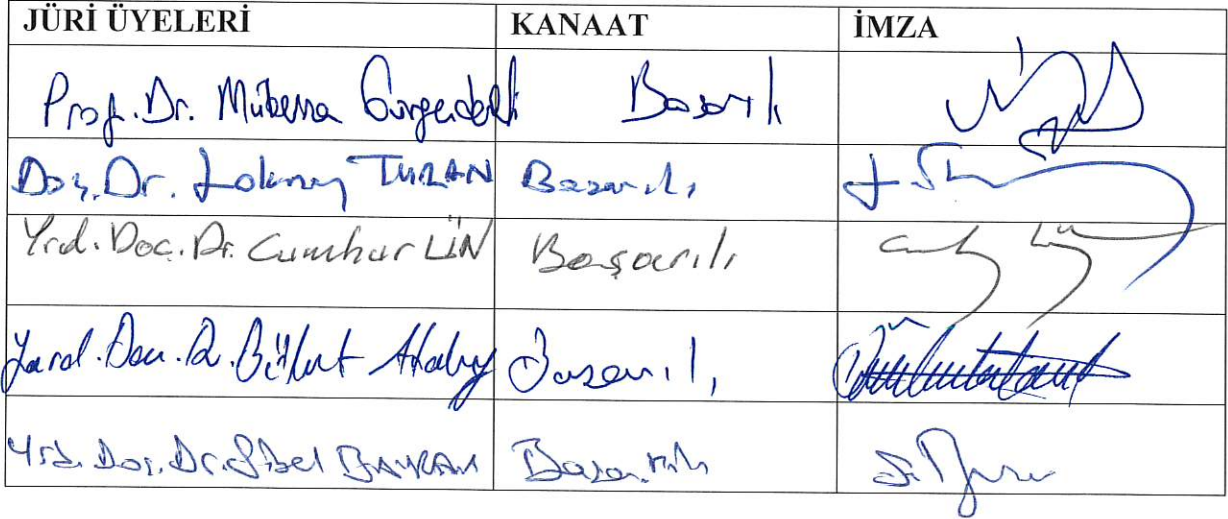 JÜRİ ÜYELERİ KANAAT İMZA
Prof. Dr. Müberra Başarılı
Doç. Dr. TURAN Başarılı
Yrd. Doç. Dr. Cumhur LİN Başarılı
Yard. Doç. Dr. Başarılı
Yrd. Doç. Dr. Sibel BAYRAM Başarılı